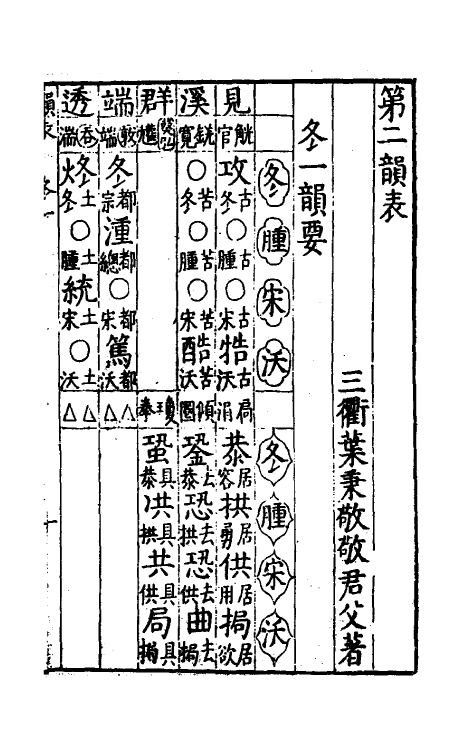 第二韻表
三衢葉秉敬敬君父著
冬一韻要
冬 腫 宋 沃 冬 腫 宋 沃
見 觥官 攻古冬 ○古腫 ○古宋 牿古沃 扃涓 恭居容 拱居勇 供居用 挶居欲
溪 觥寬 ○苦冬 ○苦腫 ○苦宋 酷苦沃 傾圈 銎去恭 恐去拱 恐去供 曲去挶
群 瓊拳 蛩具恭 㳟具拱 共具供 局具挶
端 敦端 冬都宗 湩都總 ○都宋 篤都沃 △△
透 吞湍 炵土冬 ○土腫 統土宋 ○土沃 △△
韻表 冬一